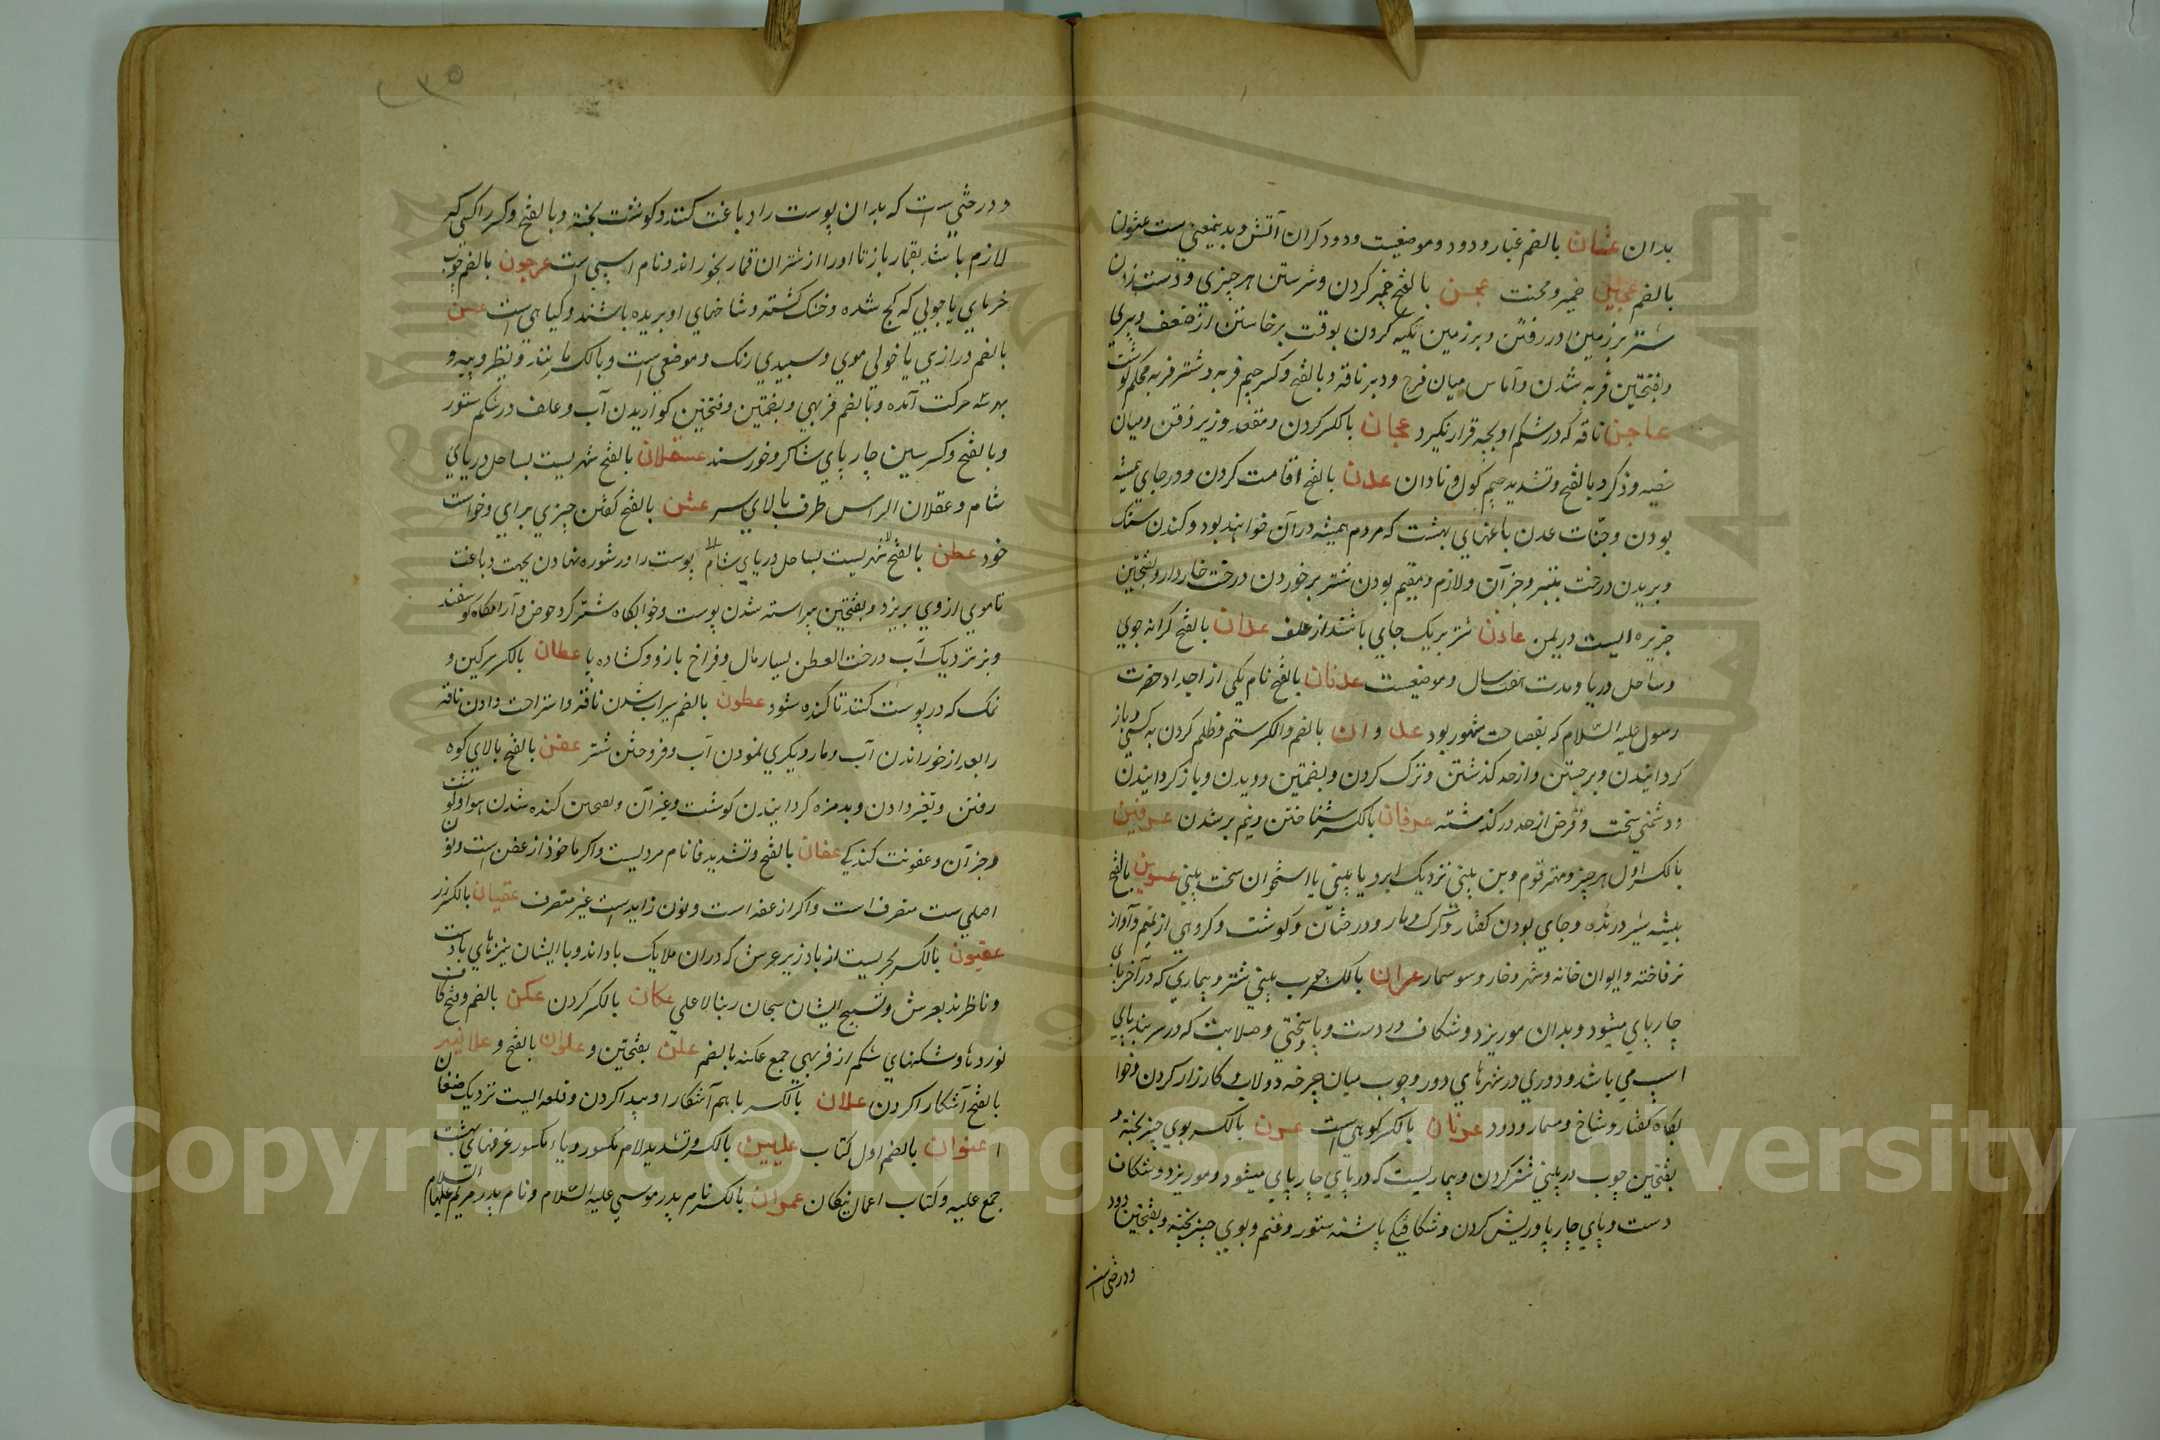 بدان عثان بالضم غبار و دود و موضعیست و دود کردن آتش و بدینمعنی است عثون
بالضم عجین خمیر و مخنث عجن بالفتح خمیر کردن و سرشتن هر چیزی و دست زدن
شتر بر زمین در رفتن و بر زمین تکیه کردن بوقت برخاستن از ضعف و پیری
و بفتحتین فربه شدن و آماس میان فرج و دبر ناقه و بالفتح و کسر جیم فربه و شتر فربه محکم گوشت
عاجن ناقه که در شکم او بچه قرار نگیرد عجان بالکسر کردن و مقعد و زیر ذقن و میان
خصیه و ذکر و بالفتح و تشدید جیم گول و نادان عدن بالفتح اقامت کردن و در جای همیشه
بودن و جنات عدن باغهای بهشت که مردم همیشه در آن خواهند بود و کندن سنگ
و بریدن درخت بتبر و جز آن و لازم و مقیم بودن شتر بر خوردن درخت خاردار و بفتحتین
جزیره ایست در یمن عادن شتر بریک جای باشند از علف عدان بالفتح کرانه جوی
و ساحل دریا و مدت هفت سال و موضعیست عدنان بالفتح نام یکی از اجداد حضرت
رسول علیه السلام که بفصاحت مشهور بود عد و ان بالضم والکسر ستم و ظلم کردن بر کسی و باز
گردانیدن و برجستن و از حد گذشتن و ترک کردن و بضمتین دویدن و باز گردانیدن
و دشمنی سخت و قرض از حد در گذشته عرفان بالکسر شناختن و نیم بر شدن عرنین
بالکسر اول هر چیز و مهتر قوم و بن بینی نزدیک ابرو یا بینی یا استخوان سخت بینی عرین بالفتح
بیشه شیر درنده و جای بودن کفتار و گرگ و مار و درختان و گوشت و گروهی از تمیم و آواز
نر فاخته و ایوان خانه و شهر و خار و سوسمار عران بالکسر چوب بینی شتر و بیماری که در آخر پای
چارپای میشود و بدان مو ریزد و شکاف در دست و پا و سختی و صلابت که در سر بند پای
اسب می باشد و دوری در شهرهای دور و چوب میان چرخه دولاب و کارزار کردن و خوا
بگاه کفتار و شاخ و مسمار و دود عرنان بالکسر کوهی است عرن بالکسر بوی چیز پخته و
بفتحتین چوب در بینی شتر کردن و بیماریست که در پای چارپای میشود و مو ریزد و شکاف
دست و پای چارپا و ریش کردن و شکافتگی پاشنه ستور و غنم و بوی چیز پخته و بفتحتین دود
و درختی است
و درختی است که بدان پوست را دباغت کنند و گوشت پخته و بالفتح و کسر را کسی که
لازم باشد بقمار باز تا او را از شتران قمار بخوراند و نام اسپی است عرجون بالضم چوب
خرمای یا چوبی که کج شده و خشک گشته و شاخهای او بریده باشند و گیاهی است عسن
بالضم درازی یا خوبی موی و سپیدی رنگ و موضعی است و بالکسر مانند و نظیر و پیه و
بهر سه حرکت آمده و بالضم فربهی و بضمتین و فتحتین گواریدن آب و علف در شکم ستور
و بالفتح و کسر سین چارپای شاکر و خورسند عسقلان بالفتح شهریست بساحل دریای
شام و عقلان الراس طرف بالای سر عشن بالفتح گفتن چیزی برای و خواست
خود عطن بالفتح شهریست بساحل دریای شام پوست را در شوره نهادن بجهت دباغت
تا موی از وی بریزد و بفتحتین پیراسته شدن پوست و خوابگاه شتر گرد حوض و آرامگاه گوسفند
و بز نزدیک آب درخت العطن بسیار مال و فراخ بازو و گشاده پا عطان بالکسر سرگین و
نمک که در پوست کنند تا گنده شود عطون بالضم سیراب شدن ناقه و استراحت دادن ناقه
را بعد از خوراندن آب و بار دیگری نمودن آب و فروختن شتر عفن بالفتح بالای کوه
رفتن و تغیر دادن و بدمزه گردانیدن گوشت و غیر آن و بفتحتین گنده شدن هوا و گوشت
و جز آن و عفونت گندیگی عفان بالفتح و تشدید فا نام مردیست و اگر ماخوذ از عفن است و نون
اصلی ست منصرف است و اگر از عفه است و نون زاید است غیر منصرف عقیان بالکسر زر
عقیون بالکسر بحریست از باد زیر عرش که دران ملایک باد اند و با ایشان نیزهای باد است
و ناظرند بعرش و تسبیح ایشان سبحان ربنا الاعلی عکان بالکسر گردن عکن بالضم و فتح کاف
نوردها و شکنهای شکم از فربهی جمع عکنه بالضم علن بفتحتین و علوان بالفتح و علانیه
بالفتح آشکارا کردن علان بالکسر با هم آشکارا و پیدا کردن و قلعه ایست نزدیک صنعان
ا عنوان بالضم اول کتاب علیین بالکسر و تشدید لام مکسور و یاء مکسور غرفهای بهشت
جمع علیه و کتاب اعمال نیکان عمران بالکسر نام پدر موسی علیه السلام و نام پدر مریم علیهما السلام
Copyright © King Saud University